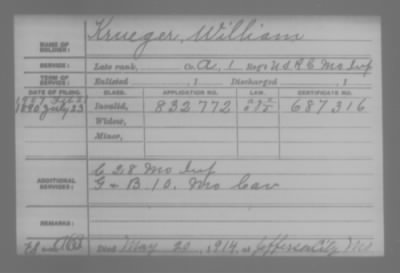 NAME OF SOLDIER: Krueger, William
SERVICE: Late rank, Co. A, 1 Reg't U S R C Mo Inf
TERM OF SERVICE: Enlisted , 1 Discharged , 1
DATE OF FILING. CLASS. APPLICATION NO. LAW. CERTIFICATE NO.
1907
1890 July 23 Invalid, 832772 687316
Widow,
Minor,
ADDITIONAL SERVICES: C 28 Mo Inf
G & B 10. Mo Cav
REMARKS:
Died May 20, 1914, at Jefferson City Mo